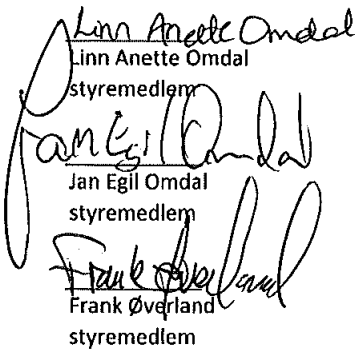 Linn Anette Omdal
Linn Anette Omdal
styremedlem
Jan Egil Omdal
Jan Egil Omdal
styremedlem
Frank Øverland
Frank Øverland
styremedlem